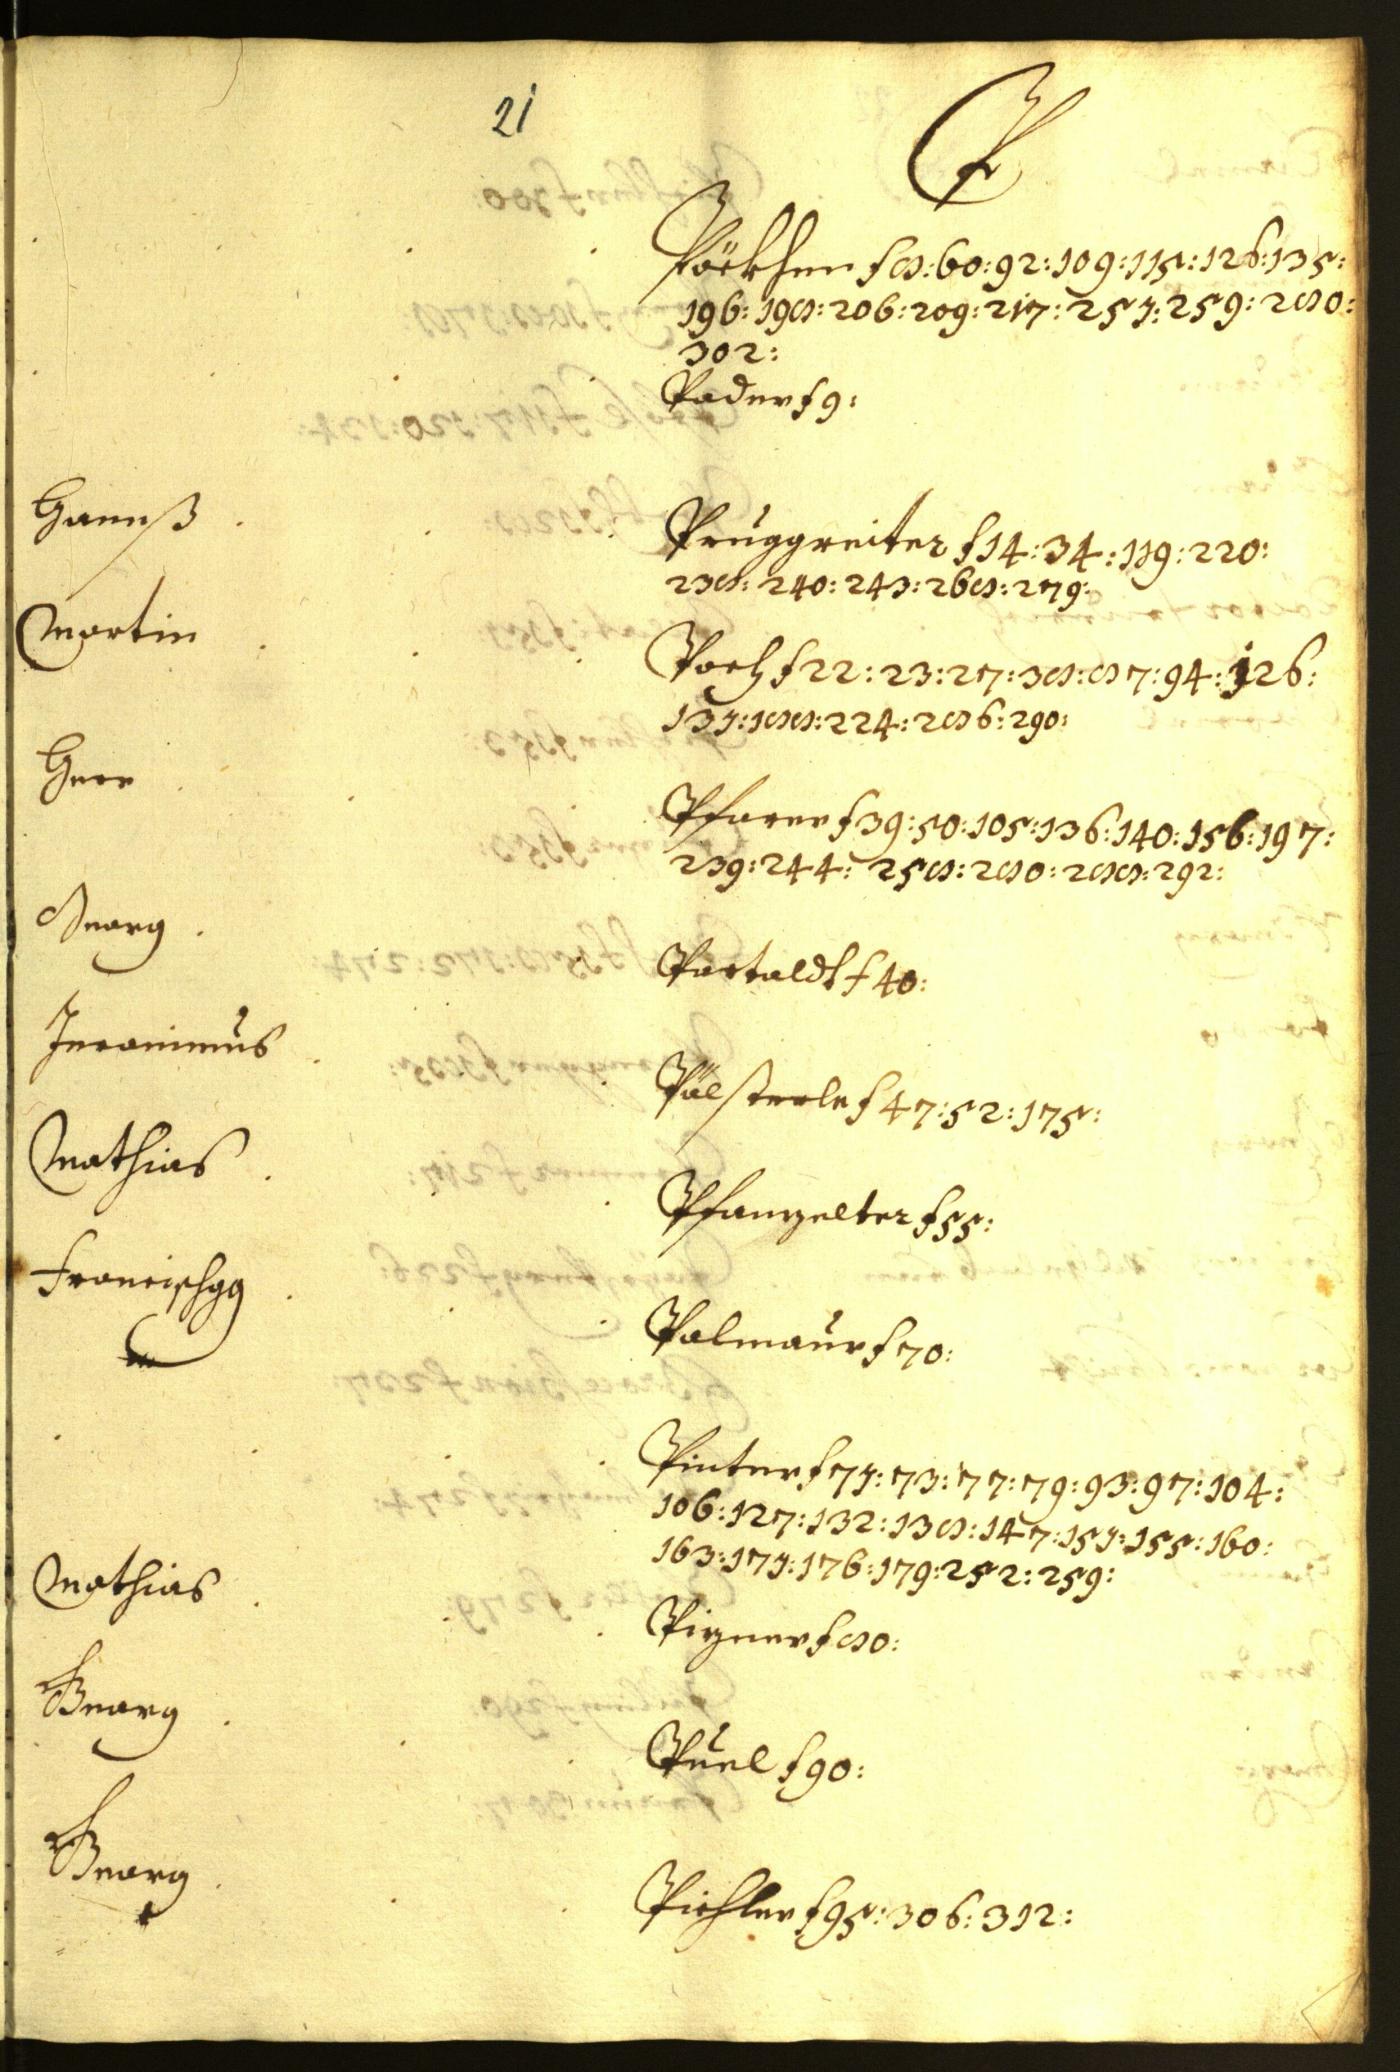 21
P
Pöckhen f 8: 60: 92: 109: 115: 126: 135:
196: 198: 206: 209: 217: 251: 259: 280:
302:
Pader f 9:
Hannß Pruggreiter f 14: 34: 119: 220:
238: 240: 243: 268: 279:
Martin Poch f 22: 23: 27: 38: 87: 94: 126:
131: 188: 224: 286: 290:
Herr Pfarer f 39: 50: 105: 136: 140: 156: 197:
239: 244: 258: 280: 288: 292:
Georg Partaldt f 40:
Jeronimus Pölsterle f 47: 52: 175:
Mathias Pfanzelter f 55:
Francischgg Palmaur f 70:
Pinter f 71: 73: 77: 79: 93: 97: 104:
106: 127: 132: 138: 147: 151: 155: 160:
163: 171: 176: 179: 252: 259:
Mathias Pizner f 80:
Georg Puel f 90:
Georg Pichler f 95: 306: 312: